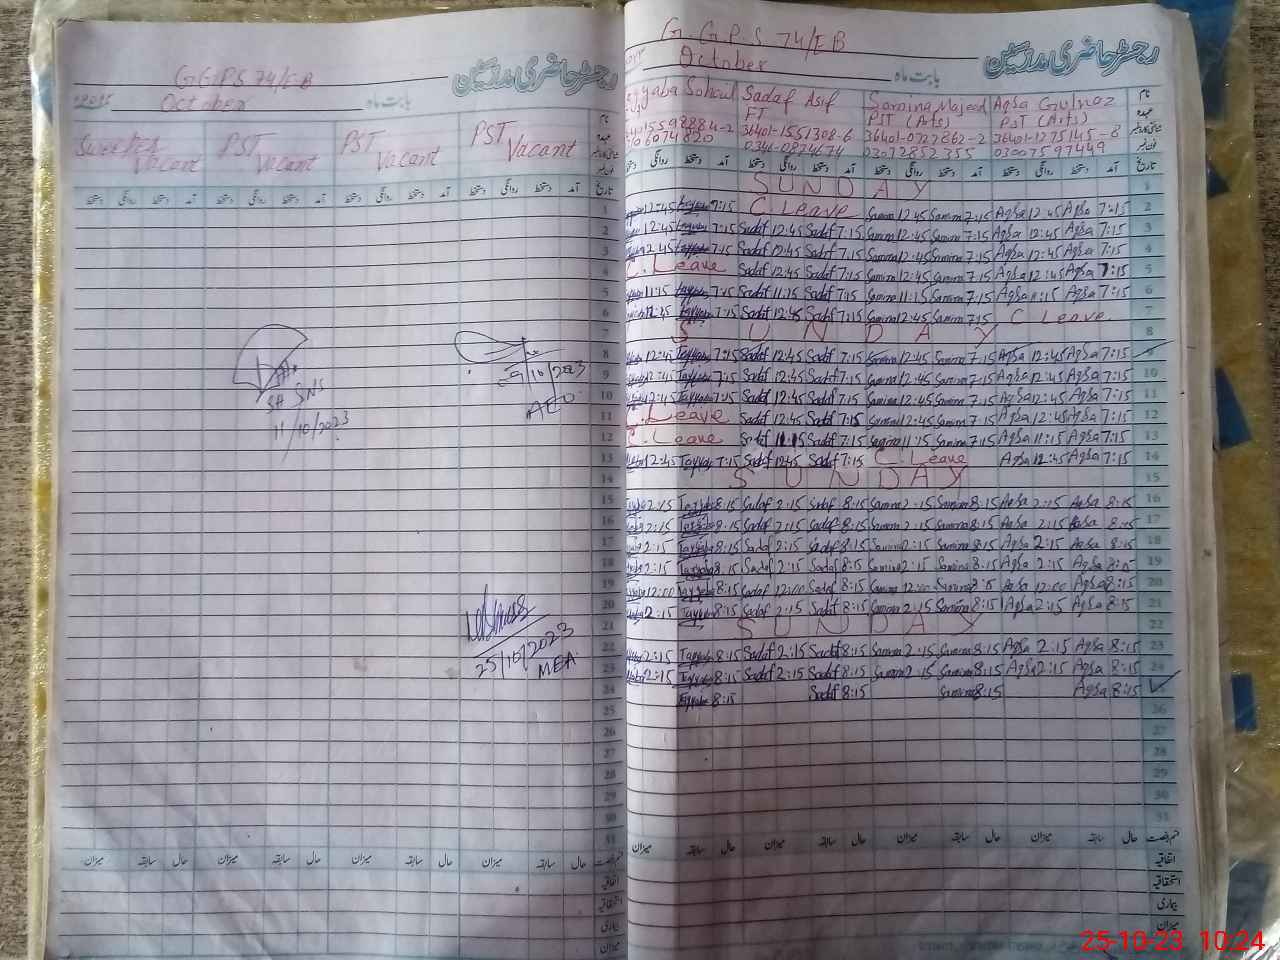 رجسٹر حاضری مدرسین
G.G.P.S 74/EB
بابت ماہ October
Sweeper Vacant PST Vacant PST Vacant PST Vacant
دستخط روانگی دستخط آمد دستخط روانگی دستخط آمد دستخط روانگی دستخط آمد دستخط روانگی دستخط آمد تاریخ
11/10/2023
9/10/2023
AEO
25/10/2023
MEA
میزان سابقہ حال میزان سابقہ حال میزان سابقہ حال میزان سابقہ حال
اتفاقیہ
استحقاقیہ
بیماری
میزان
رجسٹر حاضری مدرسین
G.G.P.S 74/EB
بابت ماہ October
Sadaf Asif Samina Majeed Aqsa Gulnaz نام
FT PST (Arts) PST (Arts) عہدہ
36401-1551308-6 36401-0727862-2 36401-1275145-8
0341-0874674 03072852355 03007597449
روانگی دستخط آمد دستخط روانگی دستخط آمد دستخط روانگی دستخط آمد دستخط روانگی دستخط آمد تاریخ
SUNDAY 1
12:45 7:15 C.Leave Samina 12:45 Samina 7:15 Aqsa 12:45 Aqsa 7:15 2
12:45 7:15 Sadaf 12:45 Sadaf 7:15 Samina 12:45 Samina 7:15 Aqsa 12:45 Aqsa 7:15 3
12:45 7:15 Sadaf 12:45 Sadaf 7:15 Samina 12:45 Samina 7:15 Aqsa 12:45 Aqsa 7:15 4
C.Leave Sadaf 12:45 Sadaf 7:15 Samina 12:45 Samina 7:15 Aqsa 12:45 Aqsa 7:15 5
11:15 7:15 Sadaf 11:15 Sadaf 7:15 Samina 11:15 Samina 7:15 Aqsa 11:15 Aqsa 7:15 6
12:45 7:15 Sadaf 12:45 Sadaf 7:15 Samina 12:45 Samina 7:15 C Leave 7
SUNDAY 8
12:45 Tayyaba 7:15 Sadaf 12:45 Sadaf 7:15 Samina 12:45 Samina 7:15 Aqsa 12:45 Aqsa 7:15 9
12:45 Tayyaba 7:15 Sadaf 12:45 Sadaf 7:15 Samina 12:45 Samina 7:15 Aqsa 12:45 Aqsa 7:15 10
12:45 Tayyaba 7:15 Sadaf 12:45 Sadaf 7:15 Samina 12:45 Samina 7:15 Aqsa 12:45 Aqsa 7:15 11
C.Leave Sadaf 12:45 Sadaf 7:15 Samina 12:45 Samina 7:15 Aqsa 12:45 Aqsa 7:15 12
C.Leave Sadaf 11:15 Sadaf 7:15 Samina 11:15 Samina 7:15 Aqsa 11:15 Aqsa 7:15 13
12:45 Tayyaba 7:15 Sadaf 12:45 Sadaf 7:15 C.Leave Aqsa 12:45 Aqsa 7:15 14
SUNDAY 15
2:15 Tayyaba 8:15 Sadaf 2:15 Sadaf 8:15 Samina 2:15 Samina 8:15 Aqsa 2:15 Aqsa 8:15 16
2:15 Tayyaba 8:15 Sadaf 2:15 Sadaf 8:15 Samina 2:15 Samina 8:15 Aqsa 2:15 Aqsa 8:15 17
2:15 Tayyaba 8:15 Sadaf 2:15 Sadaf 8:15 Samina 2:15 Samina 8:15 Aqsa 2:15 Aqsa 8:15 18
2:15 Tayyaba 8:15 Sadaf 2:15 Sadaf 8:15 Samina 2:15 Samina 8:15 Aqsa 2:15 Aqsa 8:15 19
12:00 Tayyaba 8:15 Sadaf 12:00 Sadaf 8:15 Samina 12:00 Samina 8:15 Aqsa 12:00 Aqsa 8:15 20
2:15 Tayyaba 8:15 Sadaf 2:15 Sadaf 8:15 Samina 2:15 Samina 8:15 Aqsa 2:15 Aqsa 8:15 21
SUNDAY 22
2:15 Tayyaba 8:15 Sadaf 2:15 Sadaf 8:15 Samina 2:15 Samina 8:15 Aqsa 2:15 Aqsa 8:15 23
2:15 Tayyaba 8:15 Sadaf 2:15 Sadaf 8:15 Samina 2:15 Samina 8:15 Aqsa 2:15 Aqsa 8:15 24
Tayyaba 8:15 Sadaf 8:15 Samina 8:15 Aqsa 8:15
26
27
28
29
30
31
میزان سابقہ حال میزان سابقہ حال میزان سابقہ حال میزان سابقہ حال
اتفاقیہ
استحقاقیہ
بیماری
میزان
25-10-23 10:24